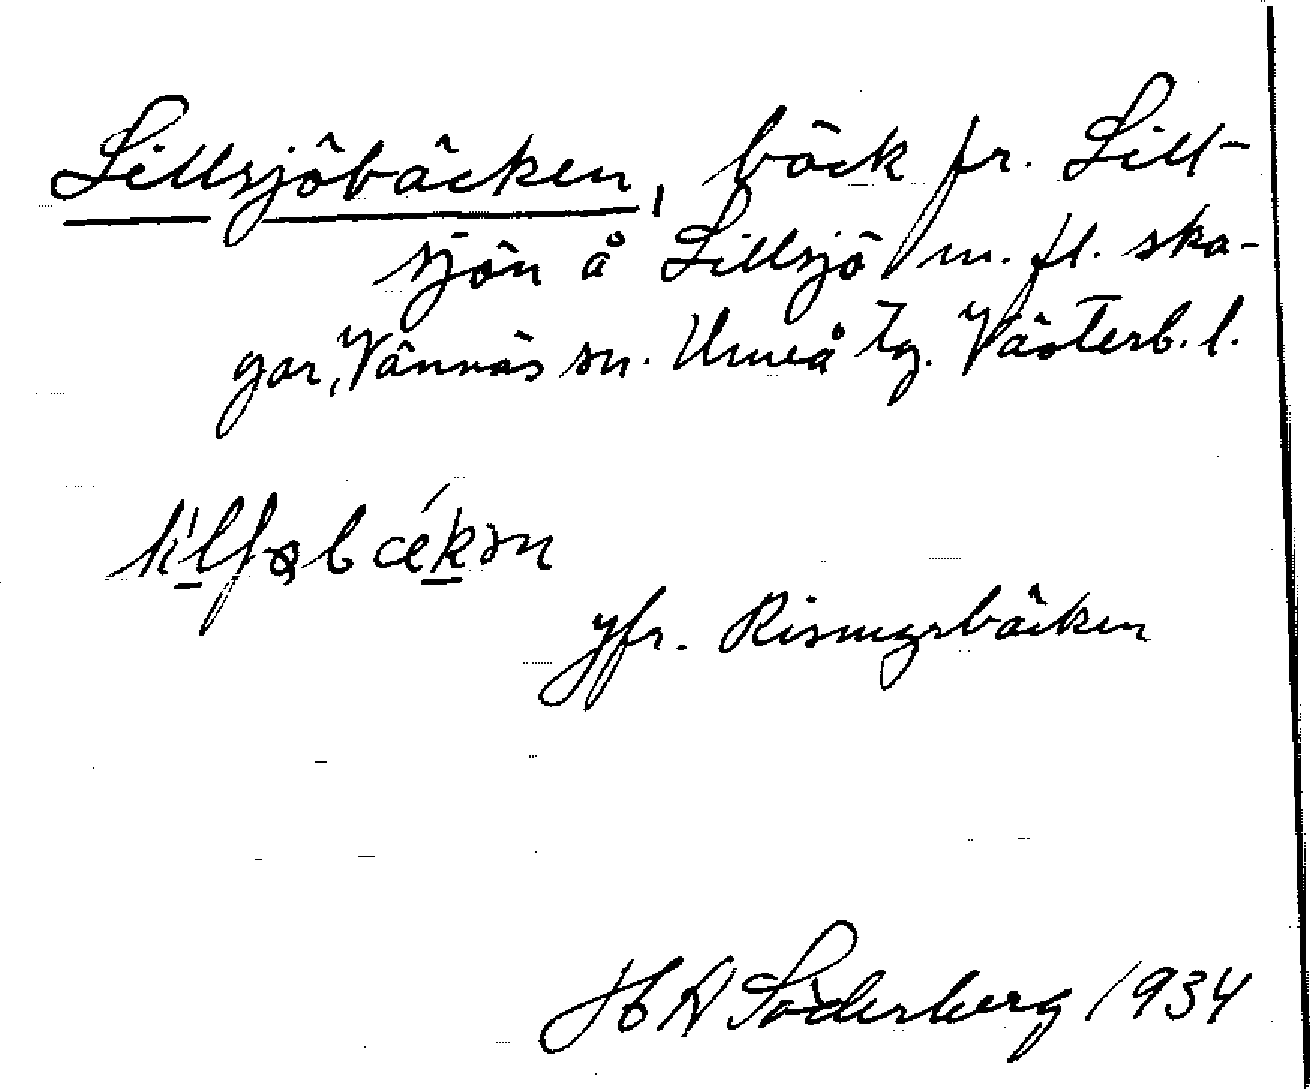 Lillsjöbäcken, bäck fr. Lill-
sjön å Lillsjö m. fl. ska-
gar, Vännäs sn. Umeå tg. Västerb. l.
jfr. Risingsbäcken
H A Söderberg 1934